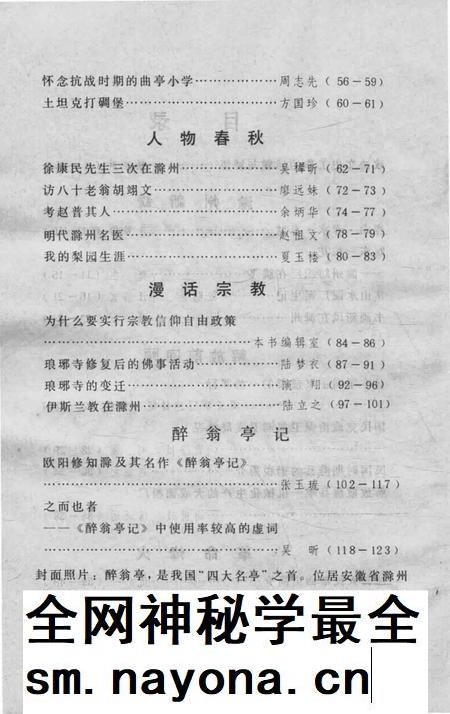 怀念抗战时期的曲亭小学……………周志先（56－59）
土坦克打碉堡……………………方国珍（60－61）
人物春秋
徐康民先生三次在滁州……………吴樨昕（62－71）
访八十老翁胡翊文…………………廖远妹（72－73）
考赵普其人…………………………余炳华（74－77）
明代滁州名医………………………赵祖文（78－79）
我的梨园生涯………………………夏玉楼（80－83）
漫话宗教
为什么要实行宗教信仰自由政策
……………………………本书编辑室（84－86）
琅琊寺修复后的佛事活动…………陆梦衣（87－91）
琅琊寺的变迁………………………演　翔（92－96）
伊斯兰教在滁州……………………陆立之（97－101）
醉翁亭记
欧阳修知滁及其名作《醉翁亭记》
……………………………张玉琉（102－117）
之而也者
——《醉翁亭记》中使用率较高的虚词
……………………………吴　昕（118－123）
封面照片：醉翁亭，是我国“四大名亭”之首。位居安徽省滁州
全网神秘学最全
sm.nayona.cn